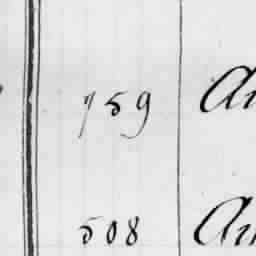 759 An
508 An